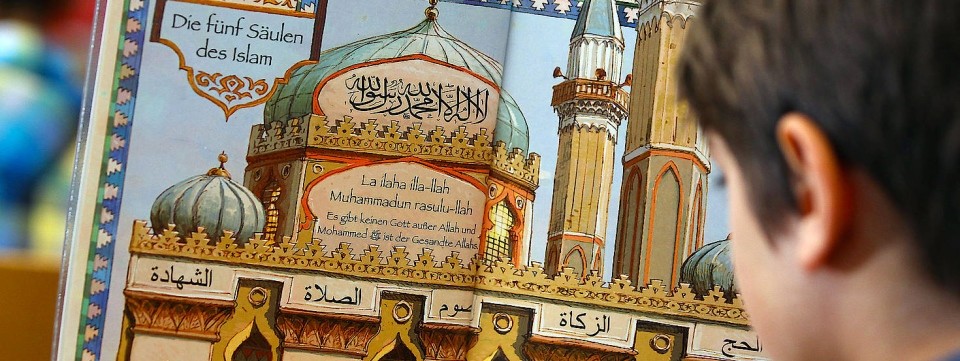 Die fünf Säulen
des Islam
لا اله الا الله محمد رسول الله
La ilaha illa-llah
Muhammadun rasulu-llah
Es gibt keinen Gott außer Allah und
Mohammed ﷺ ist der Gesandte Allahs
الشهادة
الصلاة
صوم
الزكاة
الحج